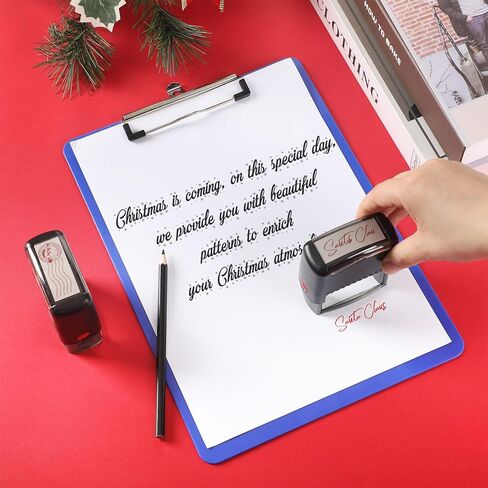 HOW TO MAKE
CLOTHING
Christmas is coming, on this special day,
we provide you with beautiful
patterns to enrich
your Christmas
Santa Claus
Santa Claus